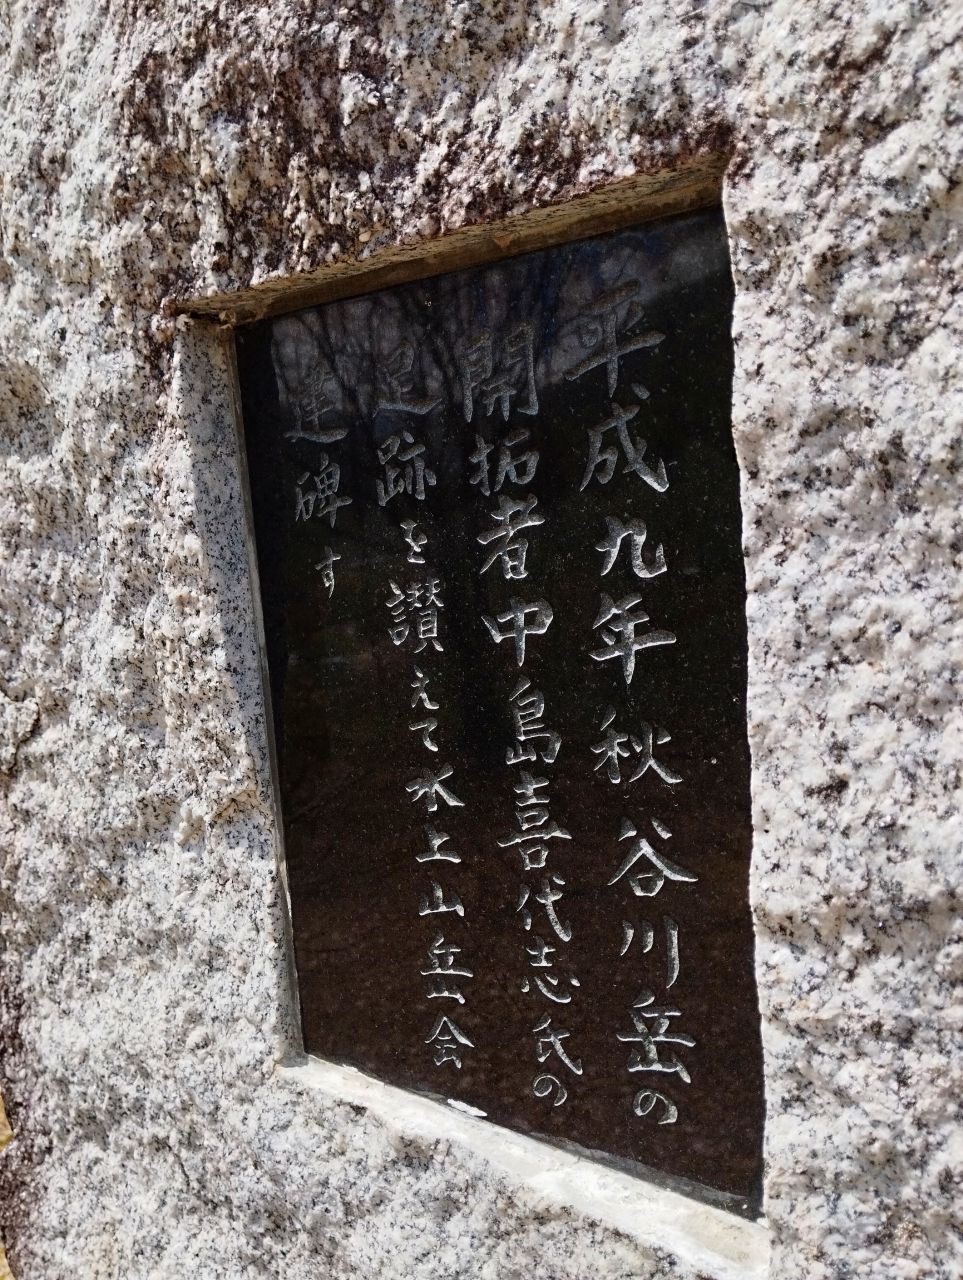 平成九年秋谷川岳の
開拓者中島喜代志氏の
足跡を讃えて水上山岳会
建碑す